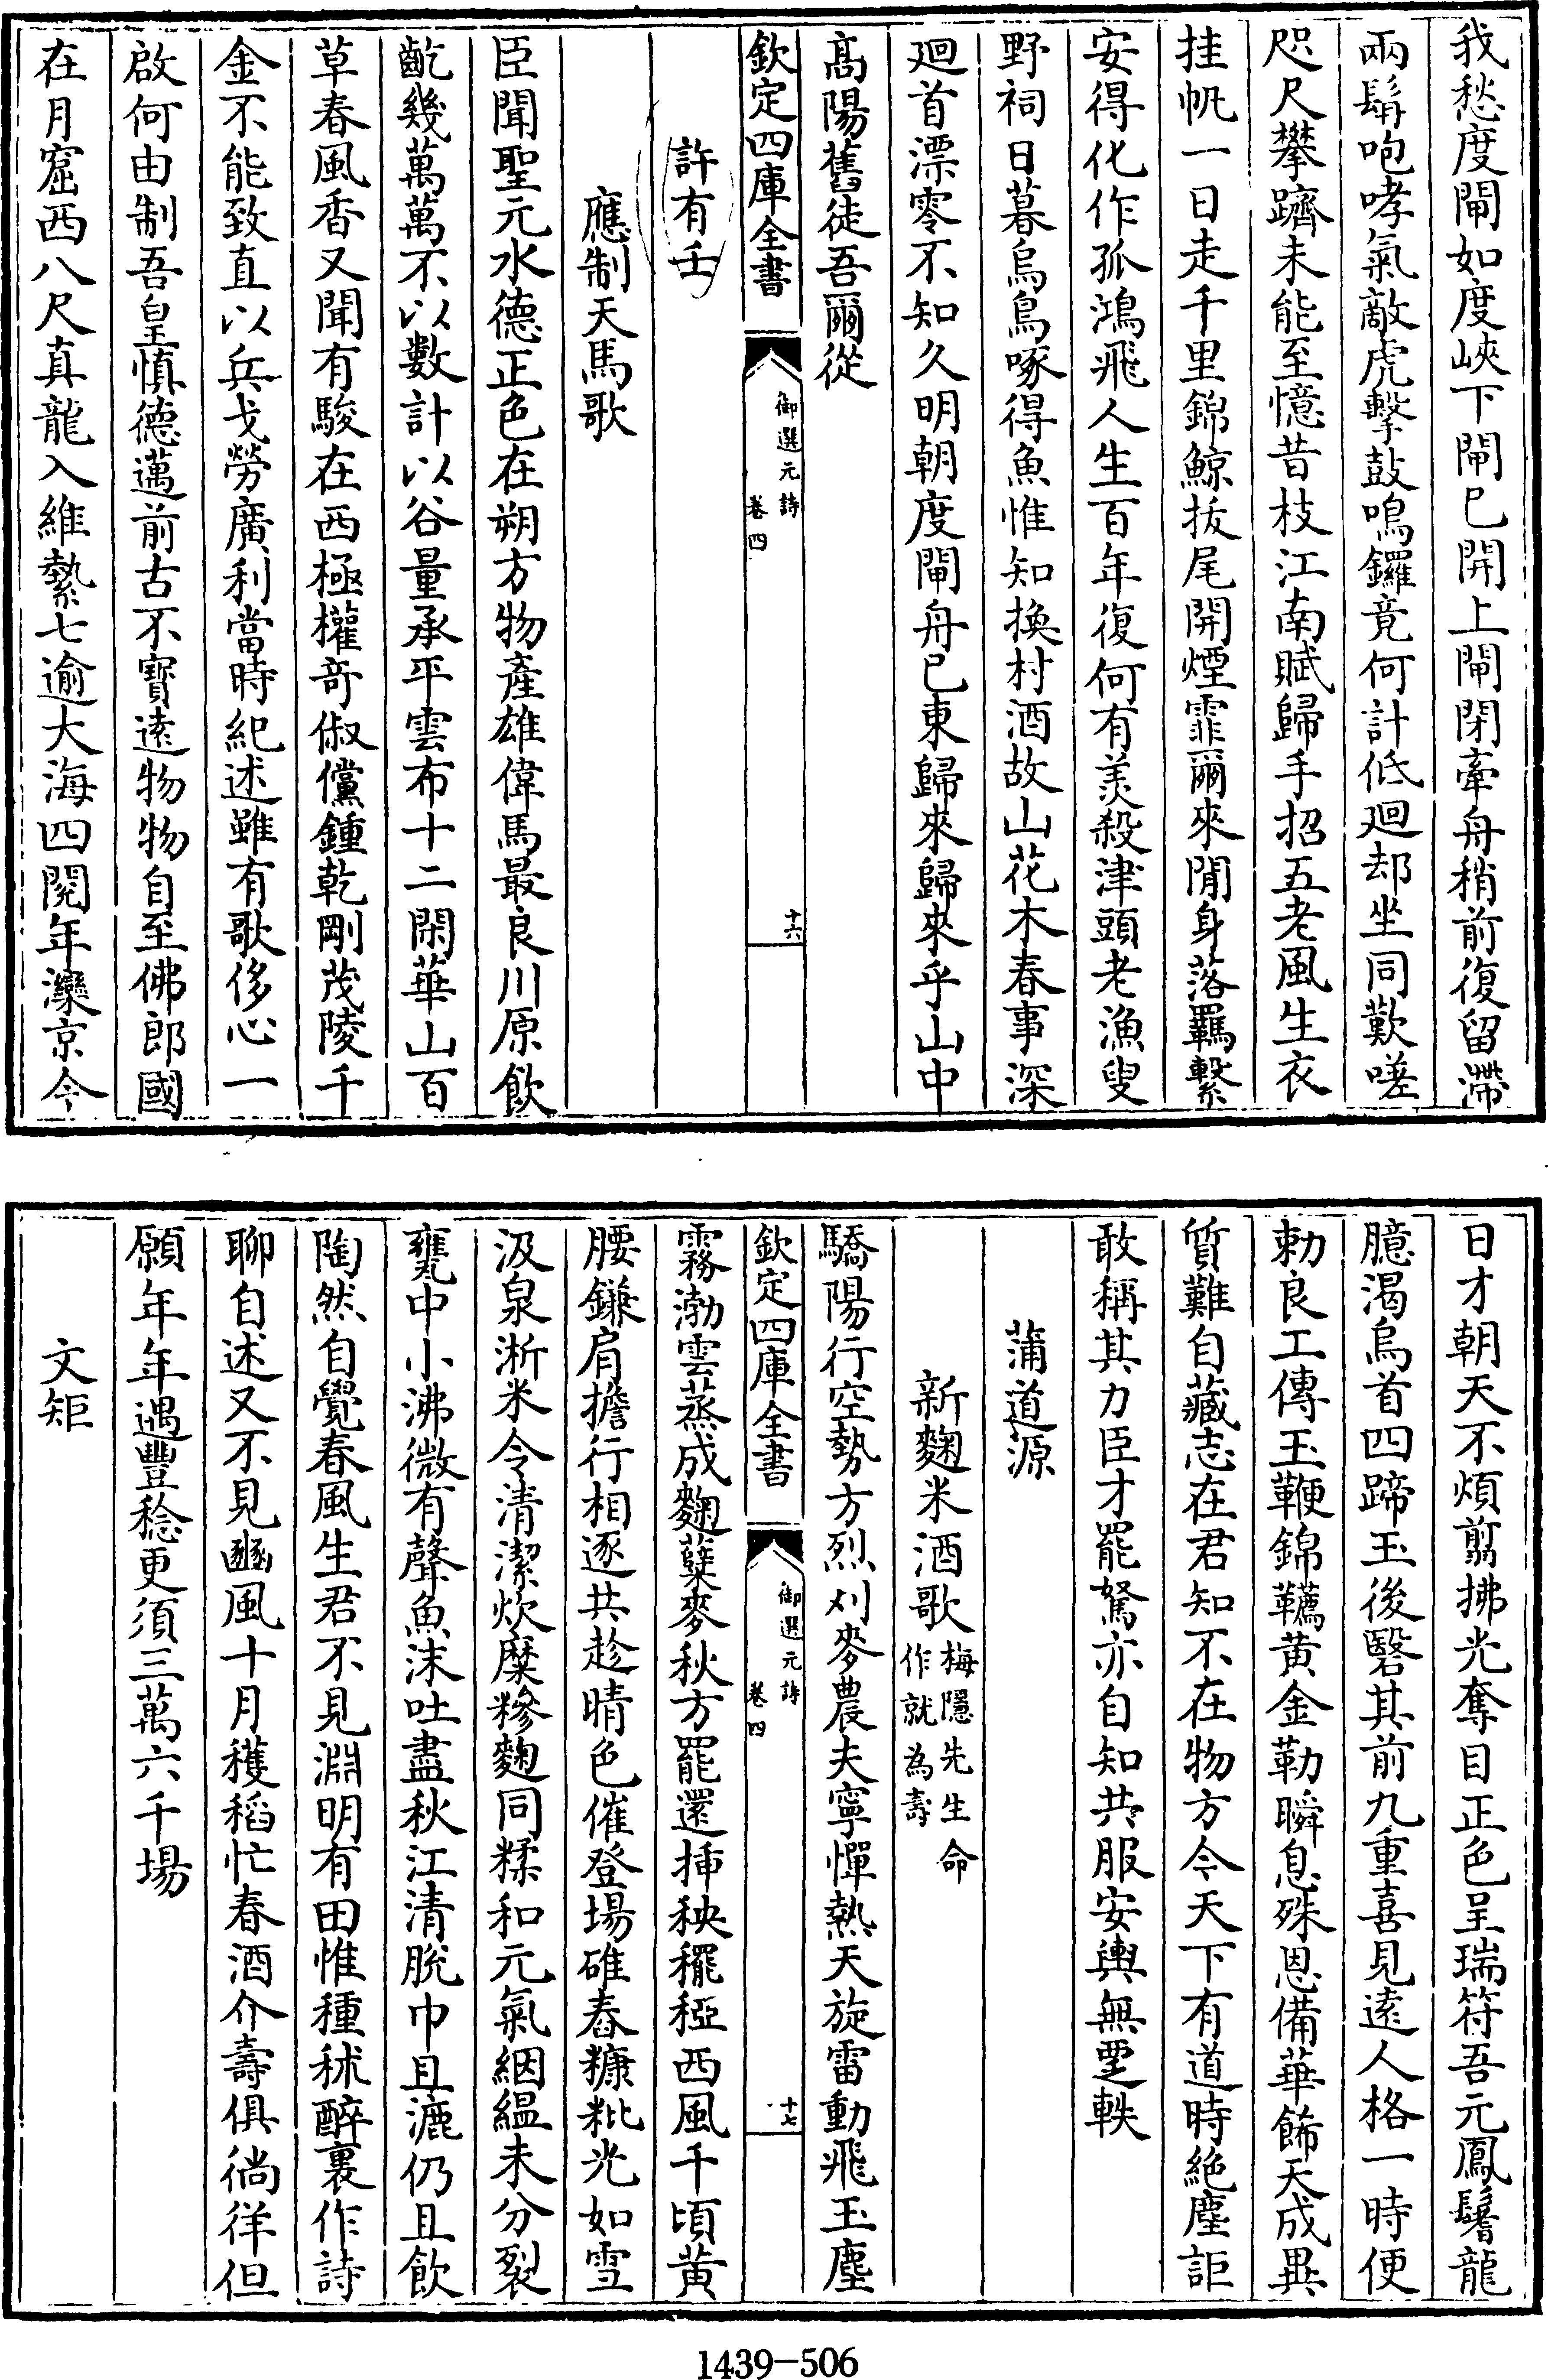 我愁度閘如度峽下閘已開上閘閉牽舟稍前復留滯
兩鬅咆哮氣敵虎擊鼓鳴鑼竟何計低廻却坐同歎嗟
咫尺攀躋未能至憶昔枝江南賦歸手招五老風生衣
挂帆一日走千里錦鯨拔尾開煙霏爾來閒身落羈繫
安得化作孤鴻飛人生百年復何有羨殺津頭老漁叟
野祠日暮烏鳥啄得魚惟知換村酒故山花木春事深
廻首漂零不知久明朝度閘舟已東歸來歸來乎山中
髙陽舊徒吾爾從
欽定四庫全書
御選元詩
卷四
十六
許有壬
應制天馬歌
臣聞聖元水德正色在朔方物產雄偉馬最良川原飲
齕幾萬萬不以數計以谷量承平雲布十二閑華山百
草春風香又聞有駿在西極權竒俶儻鍾乾剛茂陵千
金不能致直以兵戈勞廣利當時紀述雖有歌侈心一
啟何由制吾皇慎德邁前古不寳逺物物自至佛郎國
在月窟西八尺真龍入維縶七逾大海四閱年灤京今
日才朝天不煩翦拂光奪目正色呈瑞符吾元鳳鬐龍
臆渴烏首四蹄玉後䃜其前九重喜見逺人格一時便
勅良工傳玉鞭錦韉黄金勒瞬息殊恩備華飾天成異
質難自藏志在君知不在物方今天下有道時絶塵詎
敢稱其力臣才罷駑亦自知共服安輿無覂軼
蒲道源
新麴米酒歌
梅隱先生命
作就為壽
驕陽行空勢方烈刈麥農夫寧憚熱天旋雷動飛玉塵
欽定四庫全書
御選元詩
卷四
十七
霧渤雲蒸成麴糵麥秋方罷還挿秧䆉稏西風千頃黄
腰鎌肩擔行相逐共趁晴色催登場碓舂糠粃光如雪
汲泉淅米令清潔炊糜糝麴同糅和元氣絪緼未分裂
甕中小沸微有聲魚沫吐盡秋江清脫巾且漉仍且飲
陶然自覺春風生君不見淵明有田惟種秫醉裏作詩
聊自述又不見豳風十月穫稻忙春酒介壽俱徜徉但
願年年遇豐稔更須三萬六千場
文矩
1439-506